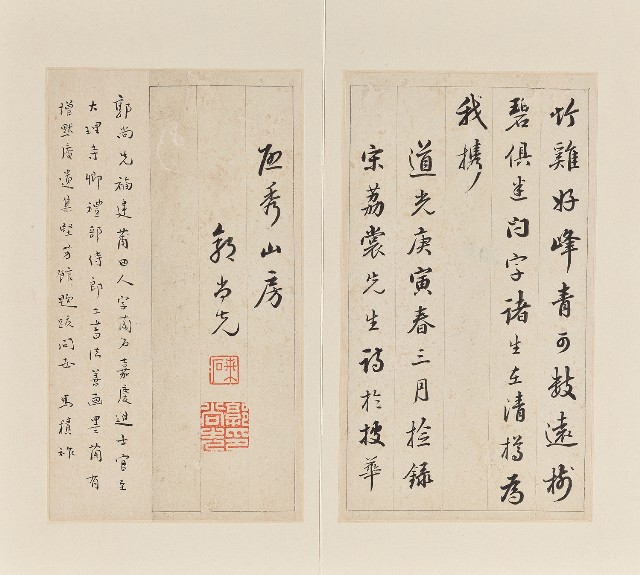 竹雞好峰青可數遠樹
碧俱迷問字諸生在清樽為
我攜
道光庚寅春三月檢錄
宋荔裳先生詩於華
秀山房
郭尚先
郭印尚先
郭尚先福建莆田人字蘭石嘉慶進士官至
大理寺卿禮部侍郎工書法善畫墨蘭有
增默庵遺集堅芳館題跋問世 馬積祚